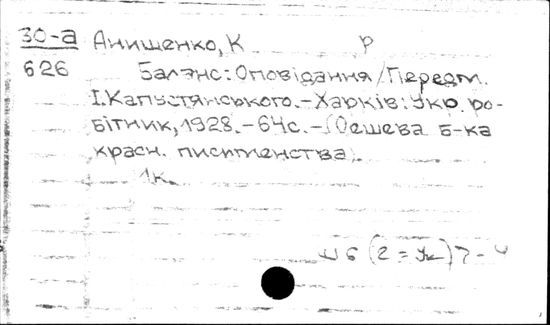 30-а Анищенко, К Р
626 Балэнс: Оповідання / Передм.
І. Капустянського. - Харків: Укр. ро-
бітник, 1928. - 64с. - (Дешева б-ка
красн. письменства).
1к.
Ш6 (2=Ук) 7-4